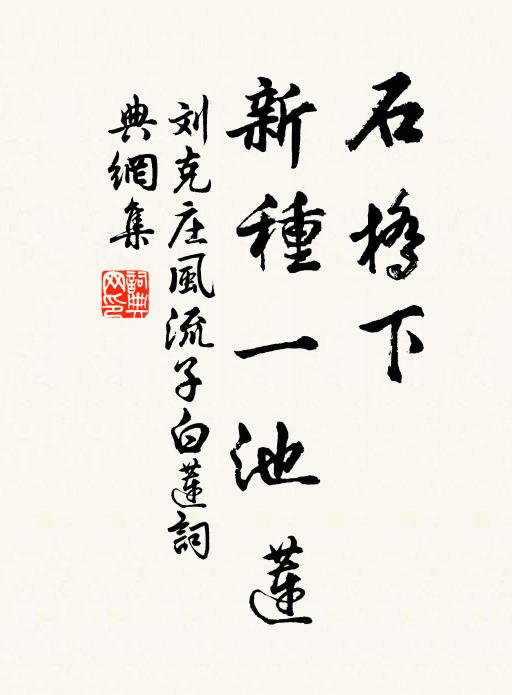 石橋下
新種一池蓮
刘克庄風流子白蓮詞
典網集
詞典
网印